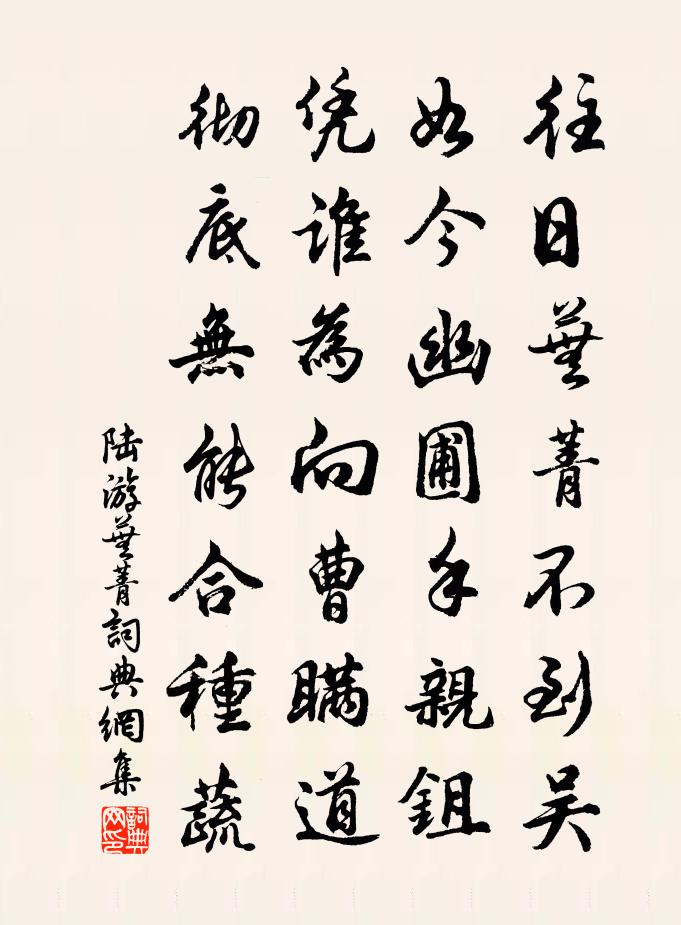 往日蕪菁不到吴
如今幽圃手親鉏
凭誰為向曹瞞道
彻底無能合種蔬
陆游蕪菁詞典網集
詞典网印